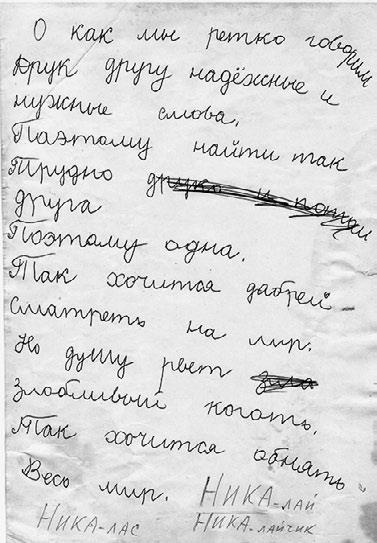 О как мы ретко говорим
Друк другу надёжные и
нужные слова,
Паэтому найти так
Трудно
друга
Поэтому одна.
Так хочится дабрей
Сматреть на мир.
Но душу рвёт
Злобливый коготь,
Так хочится обнять
Весь мир.
НИКА-ЛАЙ
НИКА-ЛАС НИКА-ЛАЙЧИК